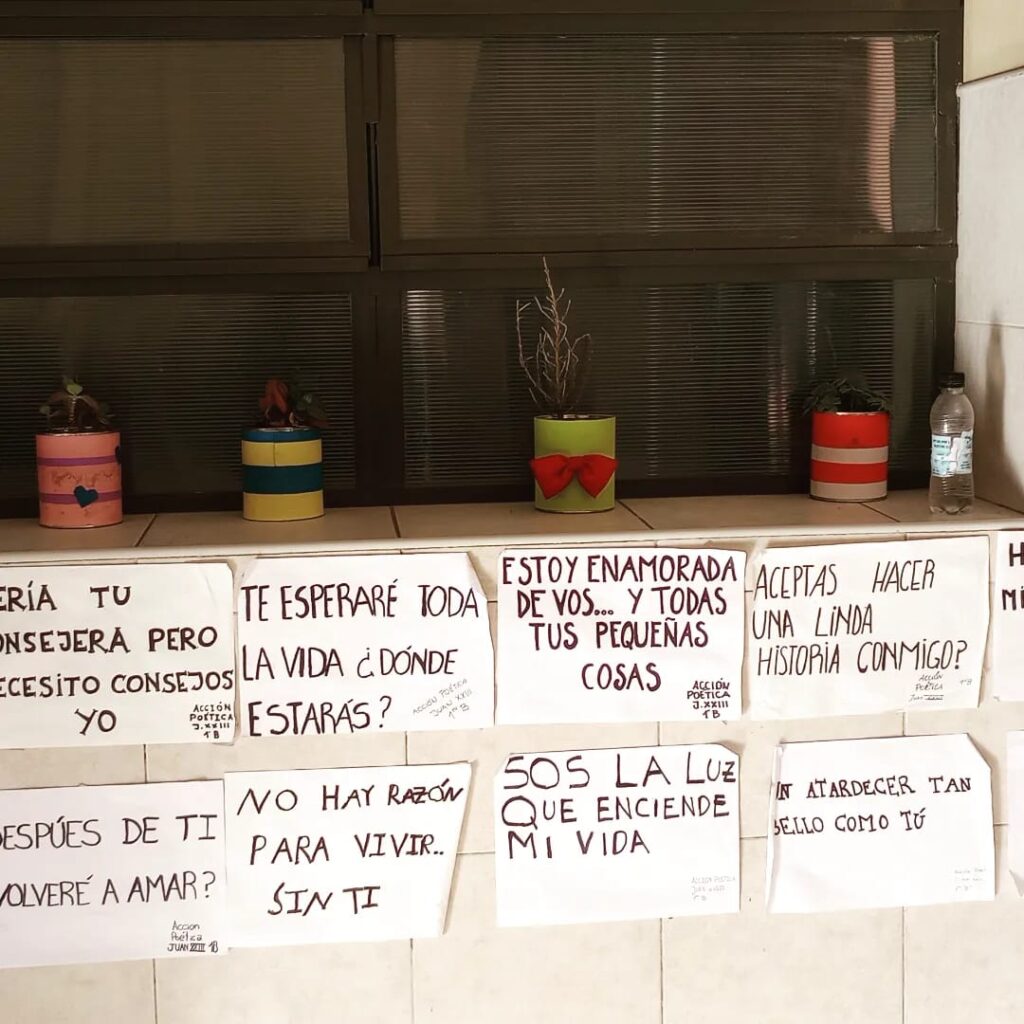 ERÍA TU
ONSEJERA PERO
ECESITO CONSEJOS
YO
ACCIÓN
POÉTICA
J.XXIII
1B
TE ESPERARÉ TODA
LA VIDA ¿DÓNDE
ESTARÁS?
ACCIÓN POÉTICA
JUAN XXIII
1ro B
ESTOY ENAMORADA
DE VOS... Y TODAS
TUS PEQUEÑAS
COSAS
ACCIÓN
POÉTICA
J.XXIII
1B
ACEPTAS HACER
UNA LINDA
HISTORIA CONMIGO?
ACCIÓN
POÉTICA
H
DESPÚES DE TI
VOLVERÉ A AMAR?
Accion
Poética
JUAN XXIII 1B
NO HAY RAZÓN
PARA VIVIR..
SIN TI
SOS LA LUZ
QUE ENCIENDE
MI VIDA
ACCIÓN POÉTICA
JUAN XXIII
1B
UN ATARDECER TAN
BELLO COMO TÚ